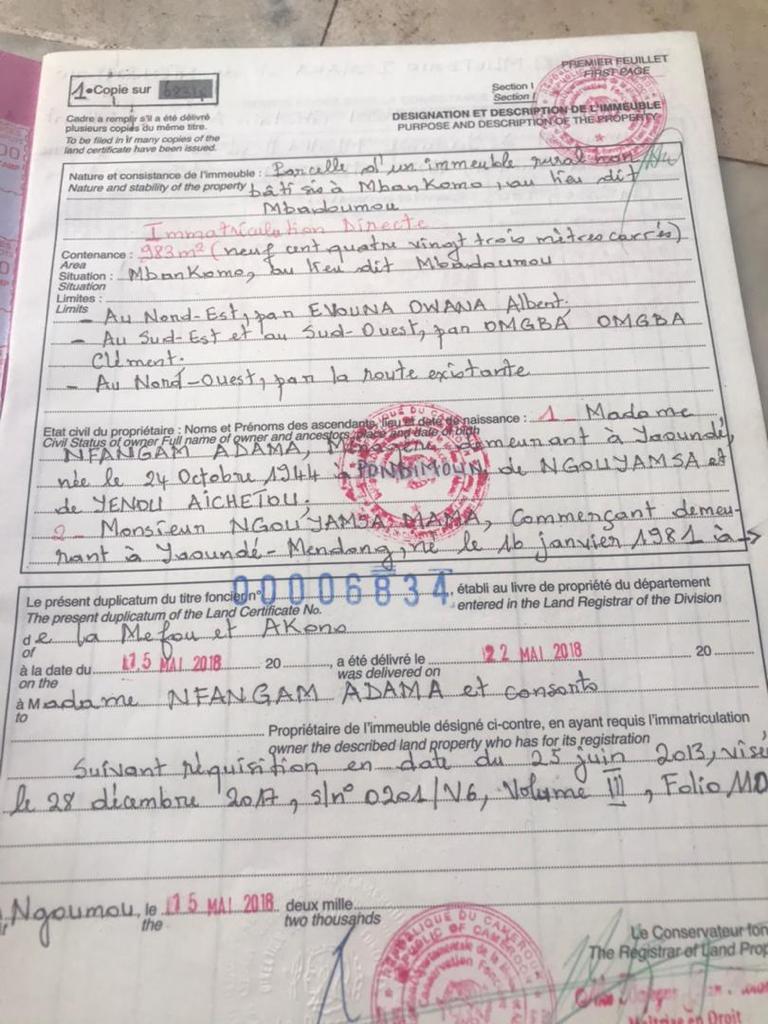 PREMIER FEUILLET
FIRST PAGE
1 Copie sur
Section I
Section I
DESIGNATION ET DESCRIPTION DE L'IMMEUBLE
PURPOSE AND DESCRIPTION OF THE PROPERTY
Cadre à remplir s'il a été délivré
plusieurs copies du même titre.
To be filed in if many copies of the
land certificate have been issued.
Nature et consistance de l'immeuble : Parcelle d'un immeuble rural non
Nature and stability of the property bâti sis à Mbankomo, au lieu dit
Mbadoumou
Immatriculation Directe
Contenance : 983m² (neuf cent quatre vingt trois mètres carrés)
Area
Situation : Mbankomo, au lieu dit Mbadoumou
Situation
Limites :
Limits
- Au Nord-Est, par EVOUNA OWANA Albert.
- Au Sud-Est et au Sud-Ouest, par OMGBA OMGBA
Clément.
- Au Nord-Ouest, par la route existante
Etat civil du propriétaire : Noms et Prénoms des ascendants, lieu et date de naissance : 1_ Madame
Civil Status of owner Full name of owner and ancestors, place and date of birth
NFANGAM ADAMA, Ménagère demeurant à Yaoundé,
née le 24 Octobre 1944 à de NGOUYAMSA et
de YENOU AICHETOU.
2_ Monsieur NGOUYAMSA MAMA, Commerçant demeu-
rant à Yaoundé-Mendong, né le 16 janvier 1981 à →
Le présent duplicatum du titre foncier n° 00006834, établi au livre de propriété du département
The present duplicatum of the Land Certificate No. entered in the Land Registrar of the Division
de la Mefou et Akono
of
à la date du 15 MAI 2018 20 , a été délivré le 22 MAI 2018 20
on the was delivered on
à Madame NFANGAM ADAMA et consorts
to
Propriétaire de l'immeuble désigné ci-contre, en ayant requis l'immatriculation
owner the described land property who has for its registration
Suivant réquisition en date du 25 juin 2013, visé
le 28 décembre 2017, s/n° 0201/V6, Volume III, Folio
Ngoumou, le 15 MAI 2018 deux mille
the two thousands
REPUBLIQUE DU CAMEROUN
REPUBLIC OF CAMEROON
Le Conservateur fon
The Registrar of Land Prop
Maîtrise en Droit